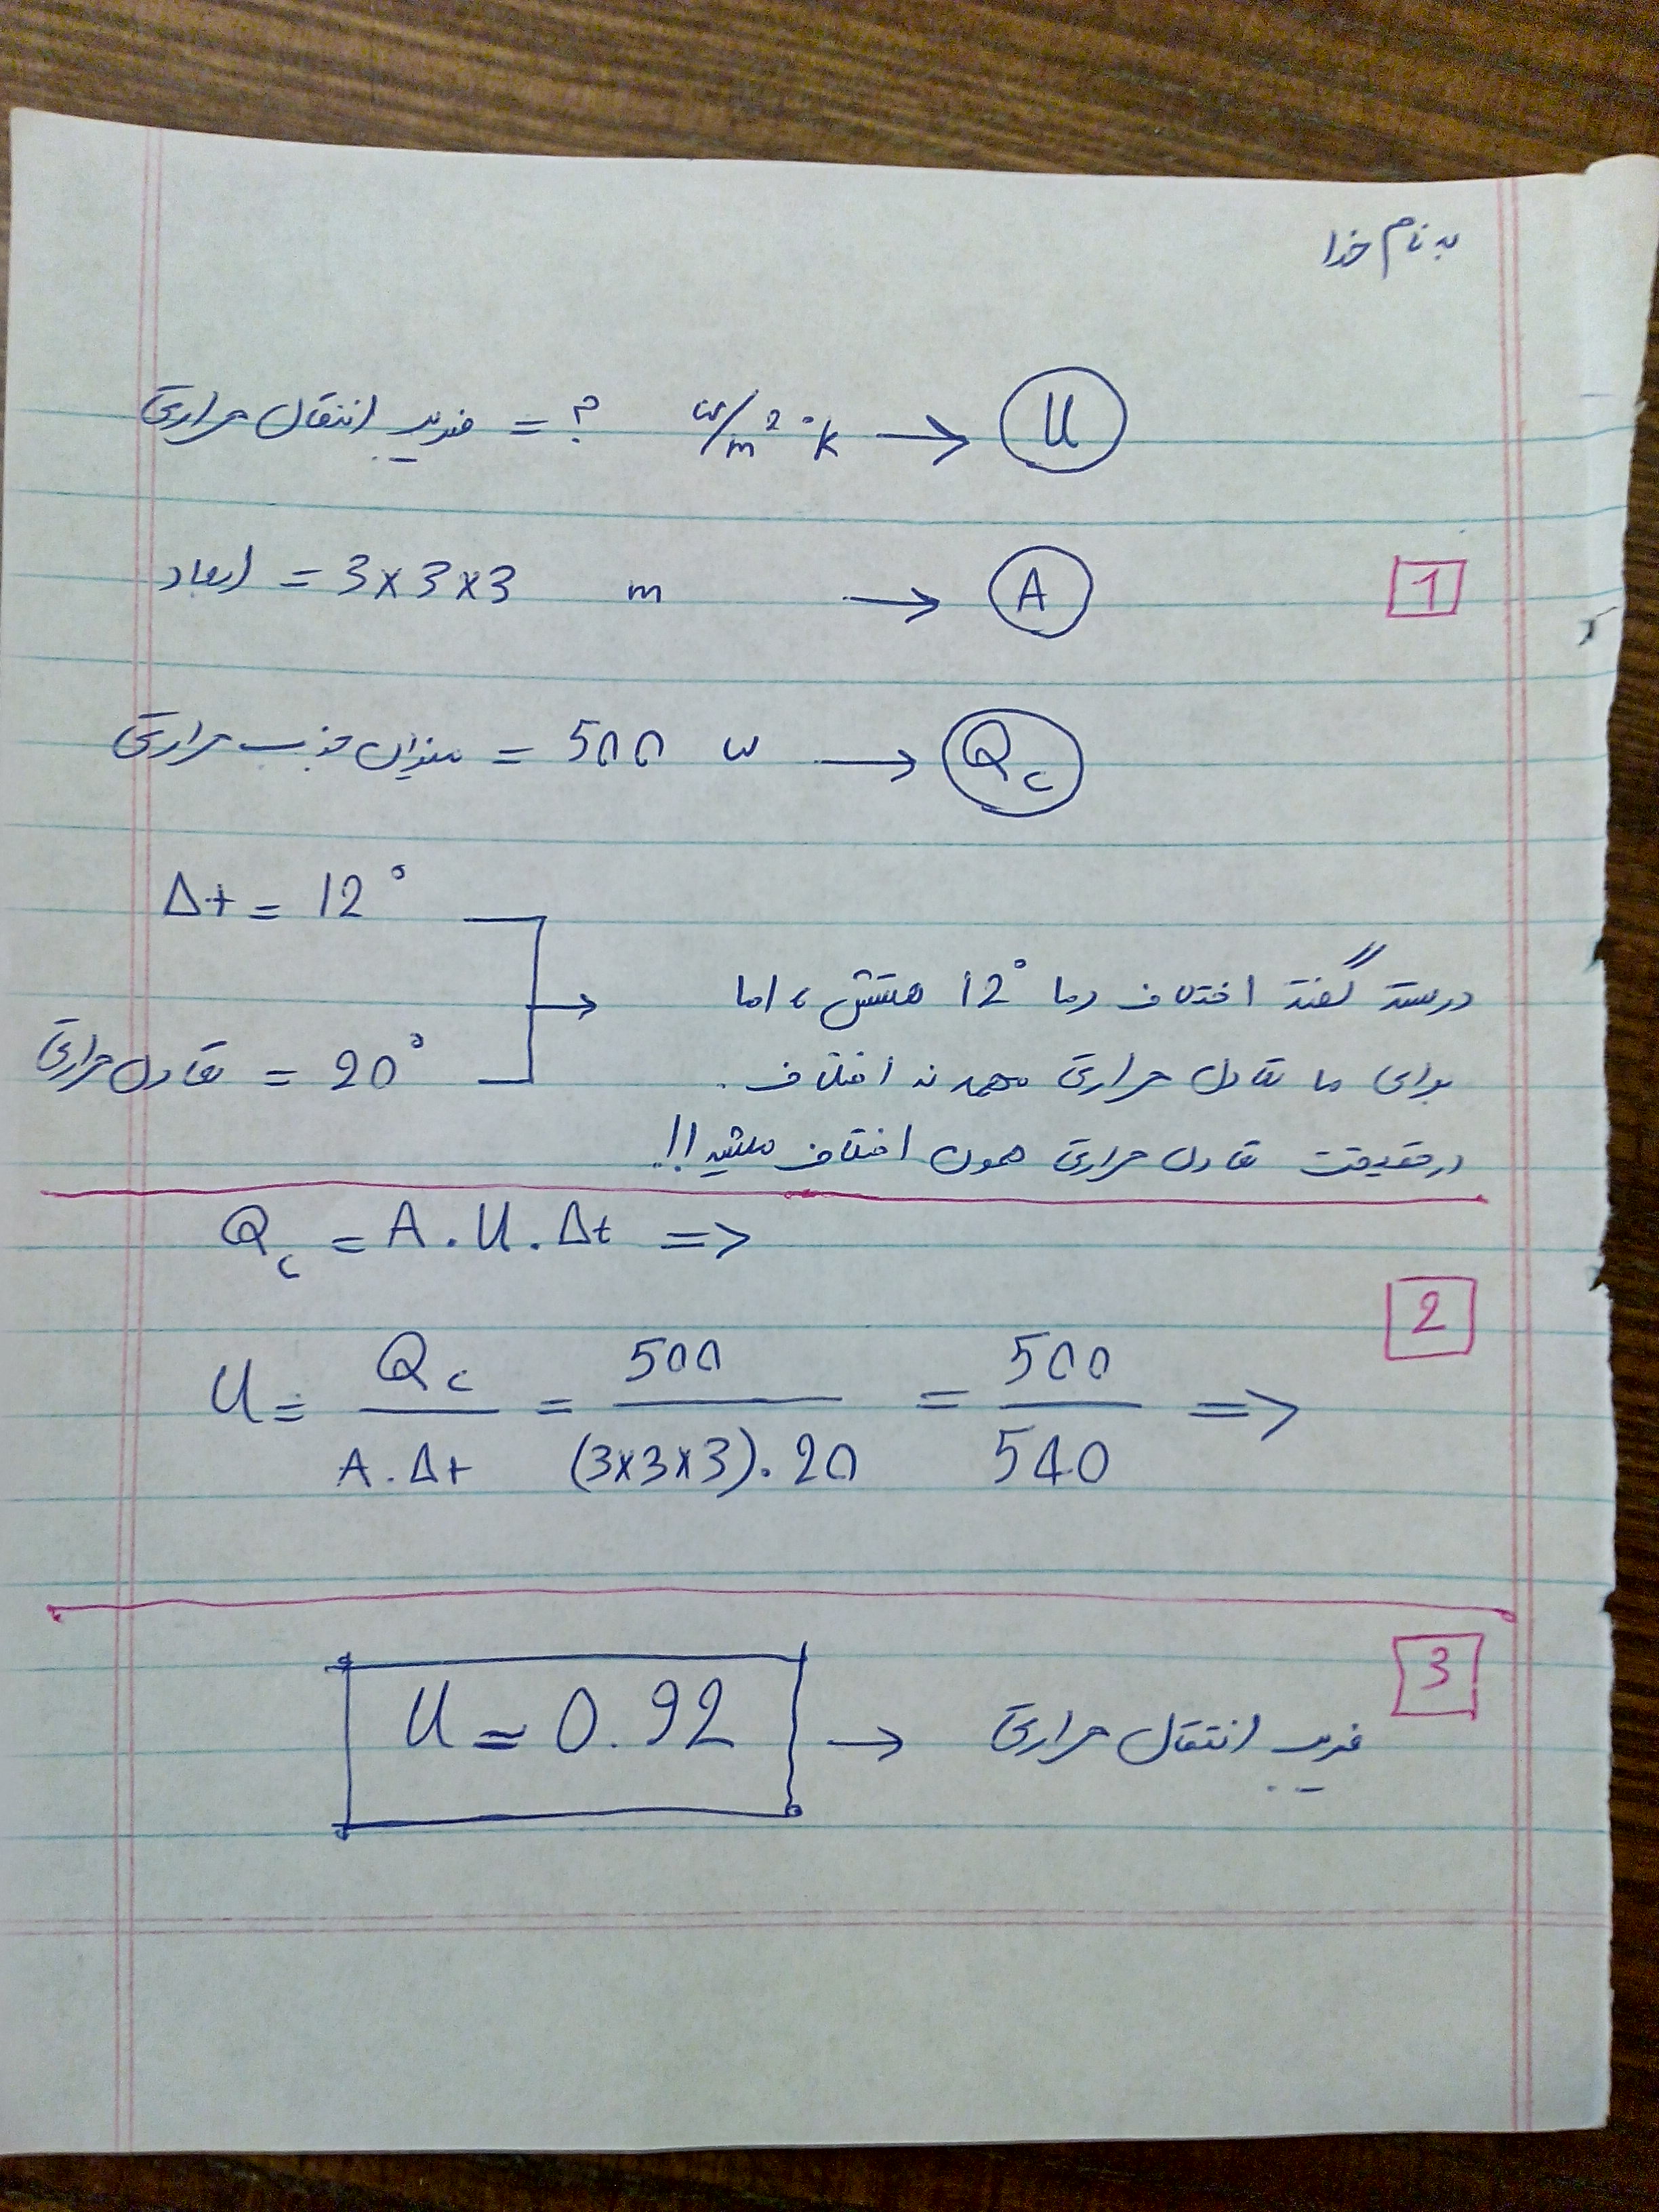 به نام خدا
ضریب انتقال حرارتی = ? w/m² °k → U
ابعاد = 3×3×3 m → A
1
میزان جذب حرارتی = 500 w → Qc
Δt = 12°
درسته گفته اختلاف دما 12° هستش، اما
تعادل حرارتی = 20°
برای ما تعادل حرارتی مهمه نه اختلاف.
درحقیقت تعادل حرارتی همون اختلاف میشه!!
Qc = A . U . Δt =>
2
U = Qc / A . Δt = 500 / (3×3×3) . 20 = 500 / 540 =>
3
U = 0.92 → ضریب انتقال حرارتی